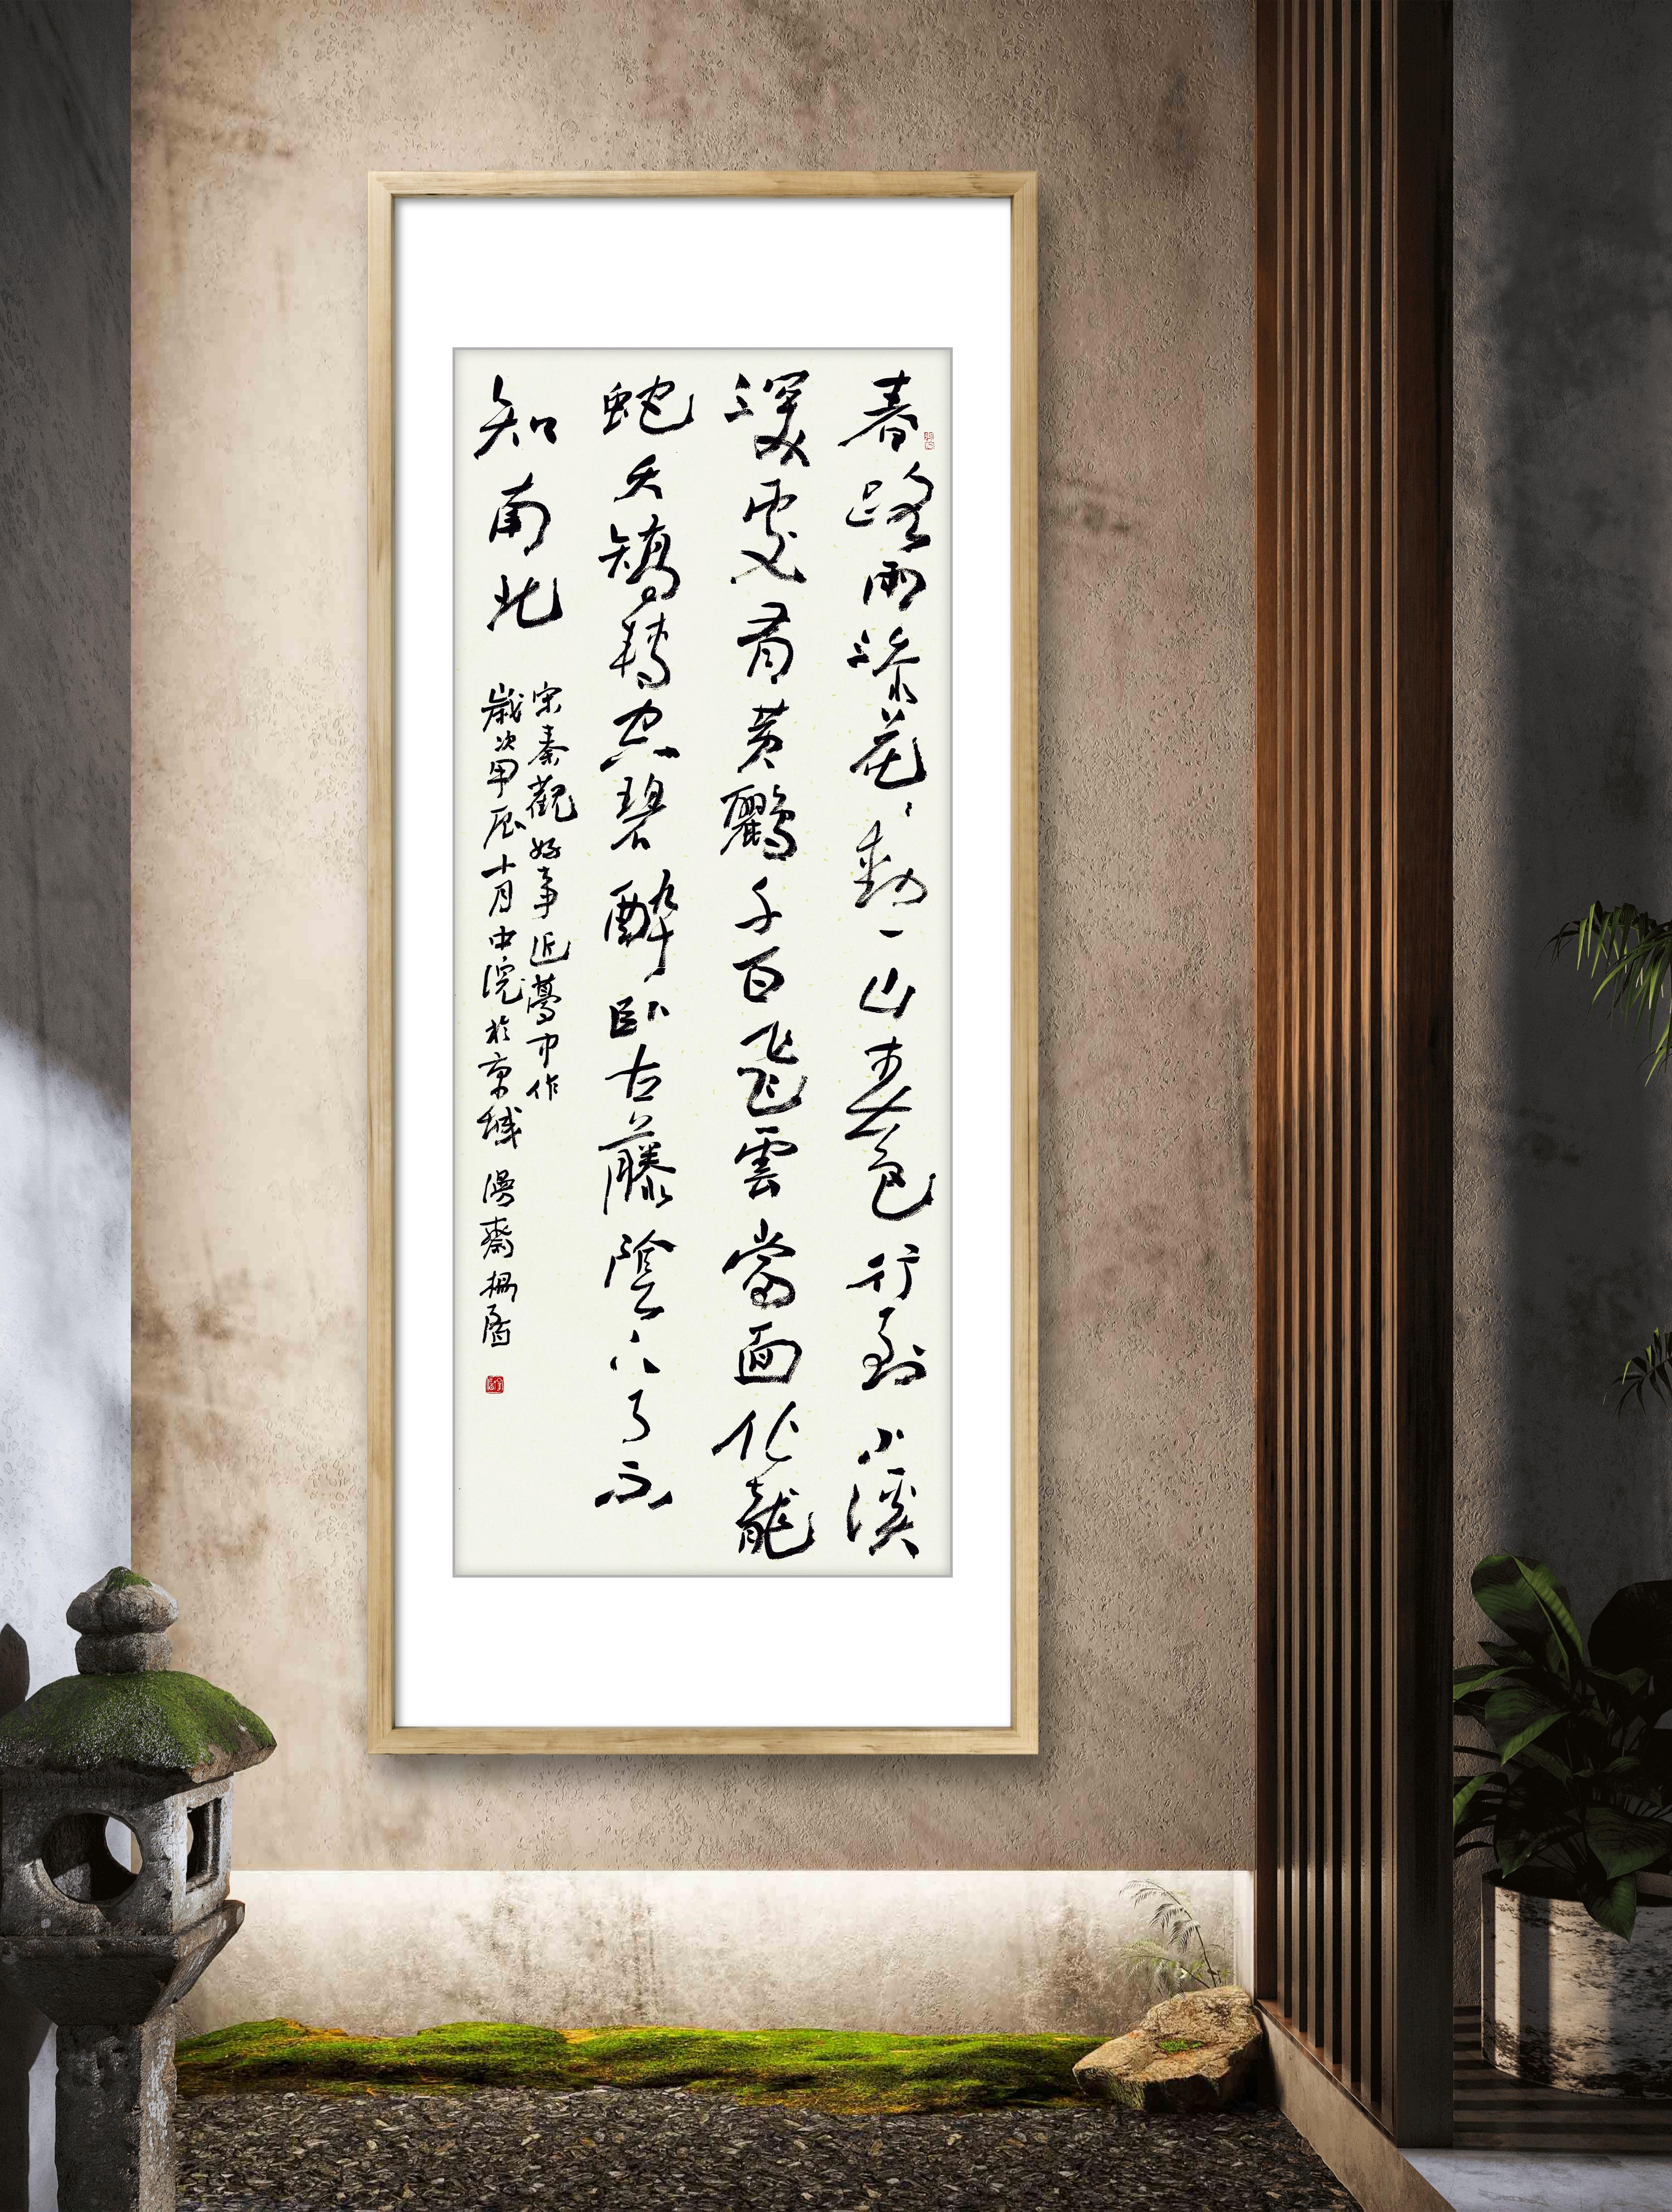 春路雨添花〻動一山春色行到小溪
深處有黃鸝千百飛雲當面化龍
蛇夭矯轉空碧醉臥古藤陰下了不
知南北
宋秦觀好事近夢中作
歲次甲辰十月中浣於京城 漫齋